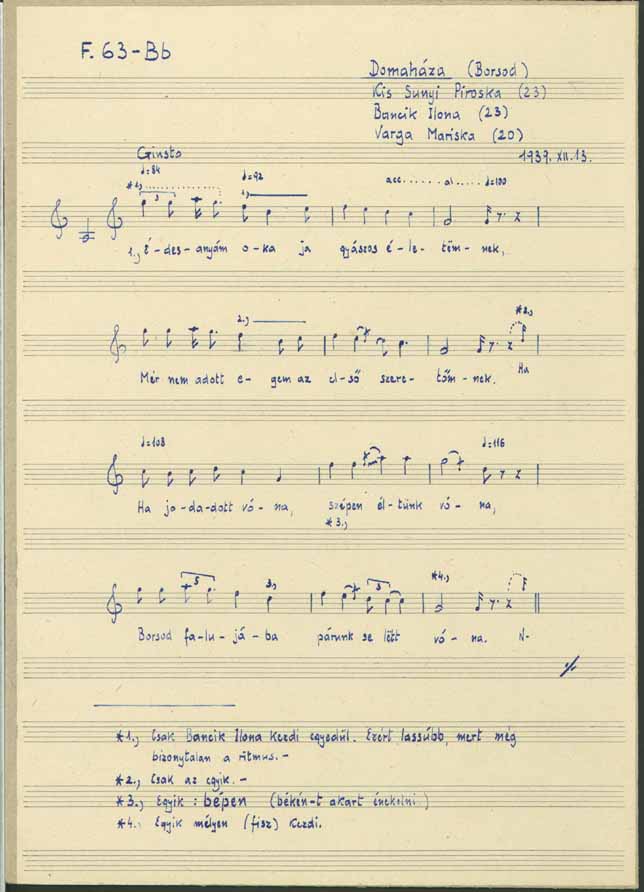 F. 63-Bb
Domaháza (Borsod)
Kis Sunyi Piroska (23)
Bancik Ilona (23)
Varga Mariska (20)
1939. XII. 13.
Giusto
♩=84 ♩=92 acc....... al..... ♩=100
*1.) 3 1.)
1., É-des-anyám o-ka ja gyászos é-le-tëm-nek,
2.) *2.,
Mér nem adott e-gem az el-ső szere-tőm-nek. Ha
♩=108 ♩=116
Ha jo-da-dott vó-na, szépen él-tünk vó-na,
*3.,
5 3.) 3 *4.,
Borsod fa-lu-já-ba párunk se lëtt vó-na. N-
*1., Csak Bancik Ilona kezdi egyedül. Ezért lassúbb, mert még
bizonytalan a ritmus.-
*2., Csak az egyik.-
*3., Egyik: bépen (békén-t akart énekelni.)
*4., Egyik mélyen (fisz) kezdi.